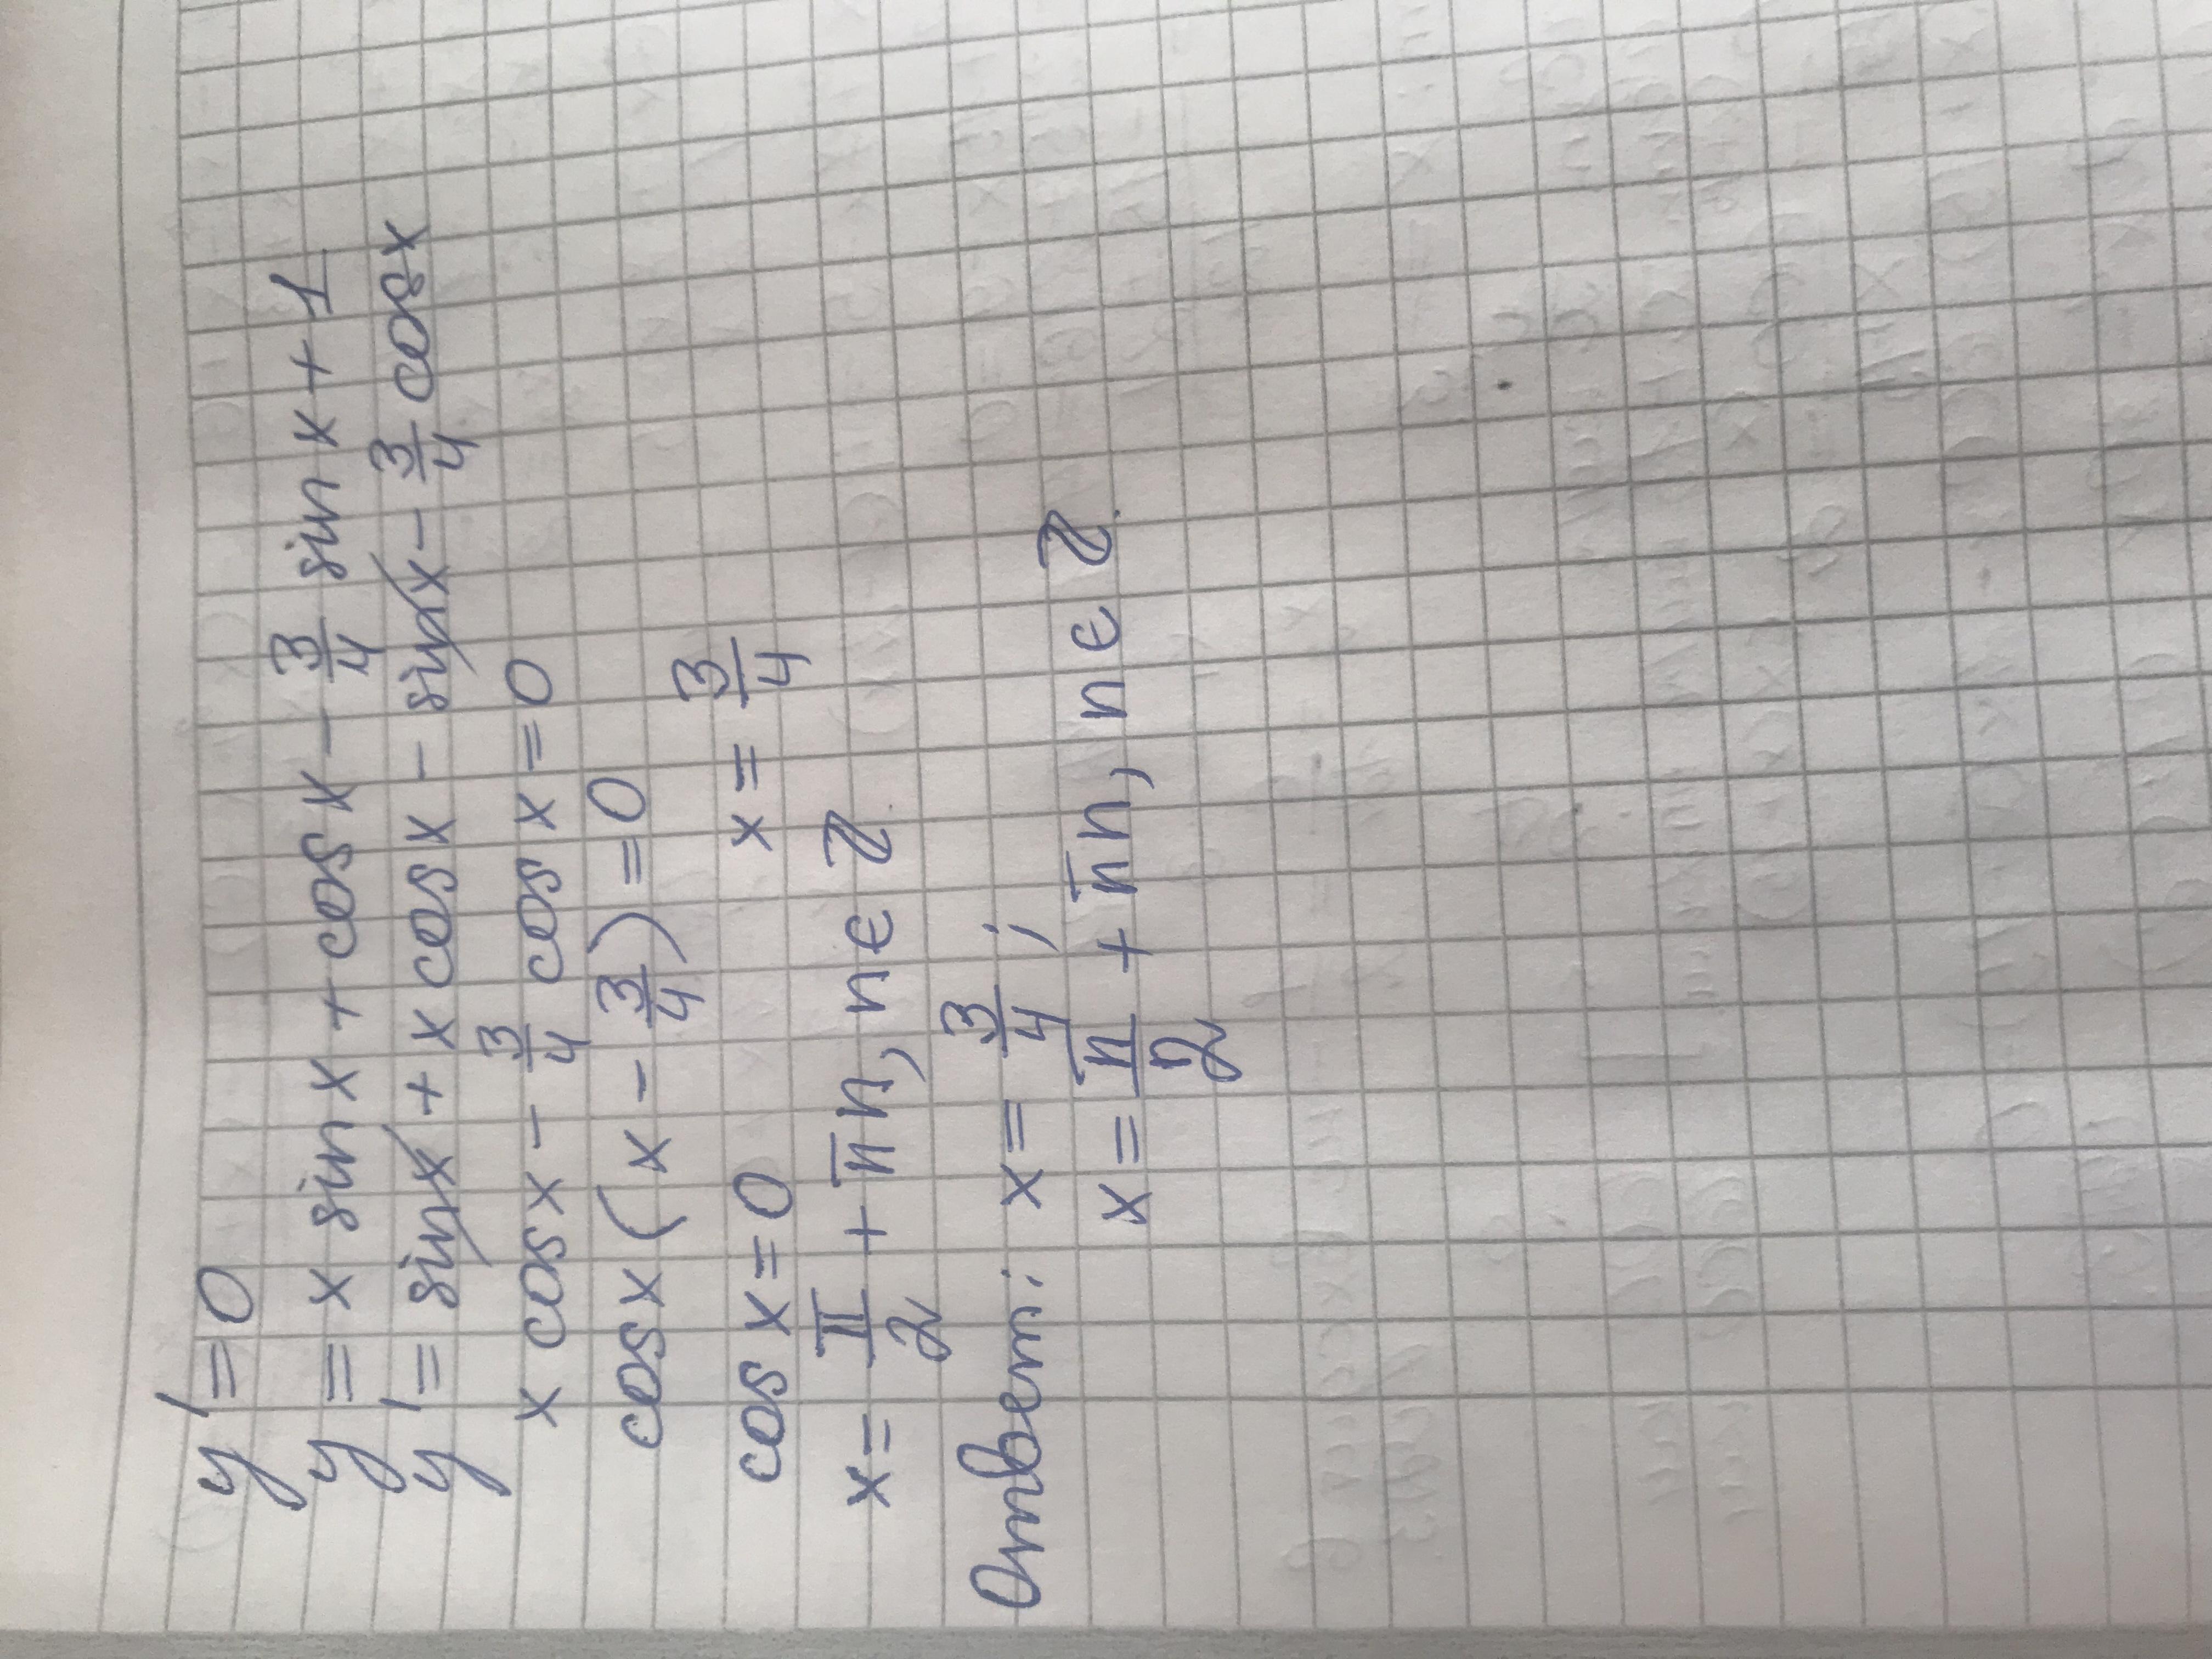 y' = 0
y = x sin x + cos x - 3/4 sin x + 1
y' = sin x + x cos x - sin x - 3/4 cos x
x cos x - 3/4 cos x = 0
cos x (x - 3/4) = 0
cos x = 0 x = 3/4
x = π/2 + πn, n ∈ Z
Ответ: x = 3/4;
x = π/2 + πn, n ∈ Z.